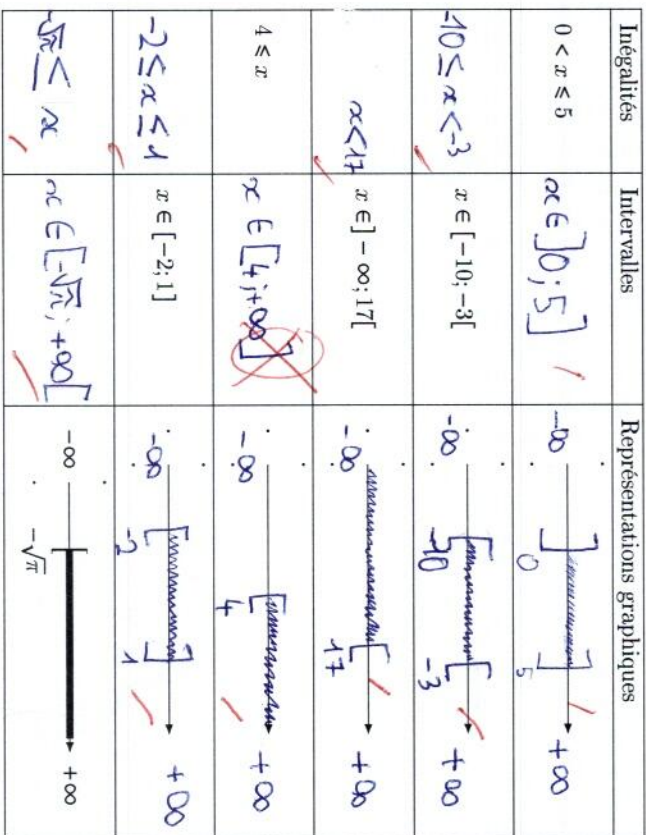 Inégalités Intervalles Représentations graphiques
0 < x ⩽ 5 x ∈ ]0 ; 5] -∞ ] 0 ] 5 +∞
-10 ≤ x < -3 x ∈ [-10; -3[ -∞ [ -10 [ -3 +∞
x < 17 x ∈] - ∞; 17[ -∞ [ 17 +∞
4 ⩽ x x ∈ [4 ; +∞] -∞ [ 4 +∞
-2 ≤ x ≤ 1 x ∈ [-2; 1] -∞ [ -2 ] 1 +∞
-√π ≤ x x ∈ [-√π ; +∞[ -∞ [ -√π +∞